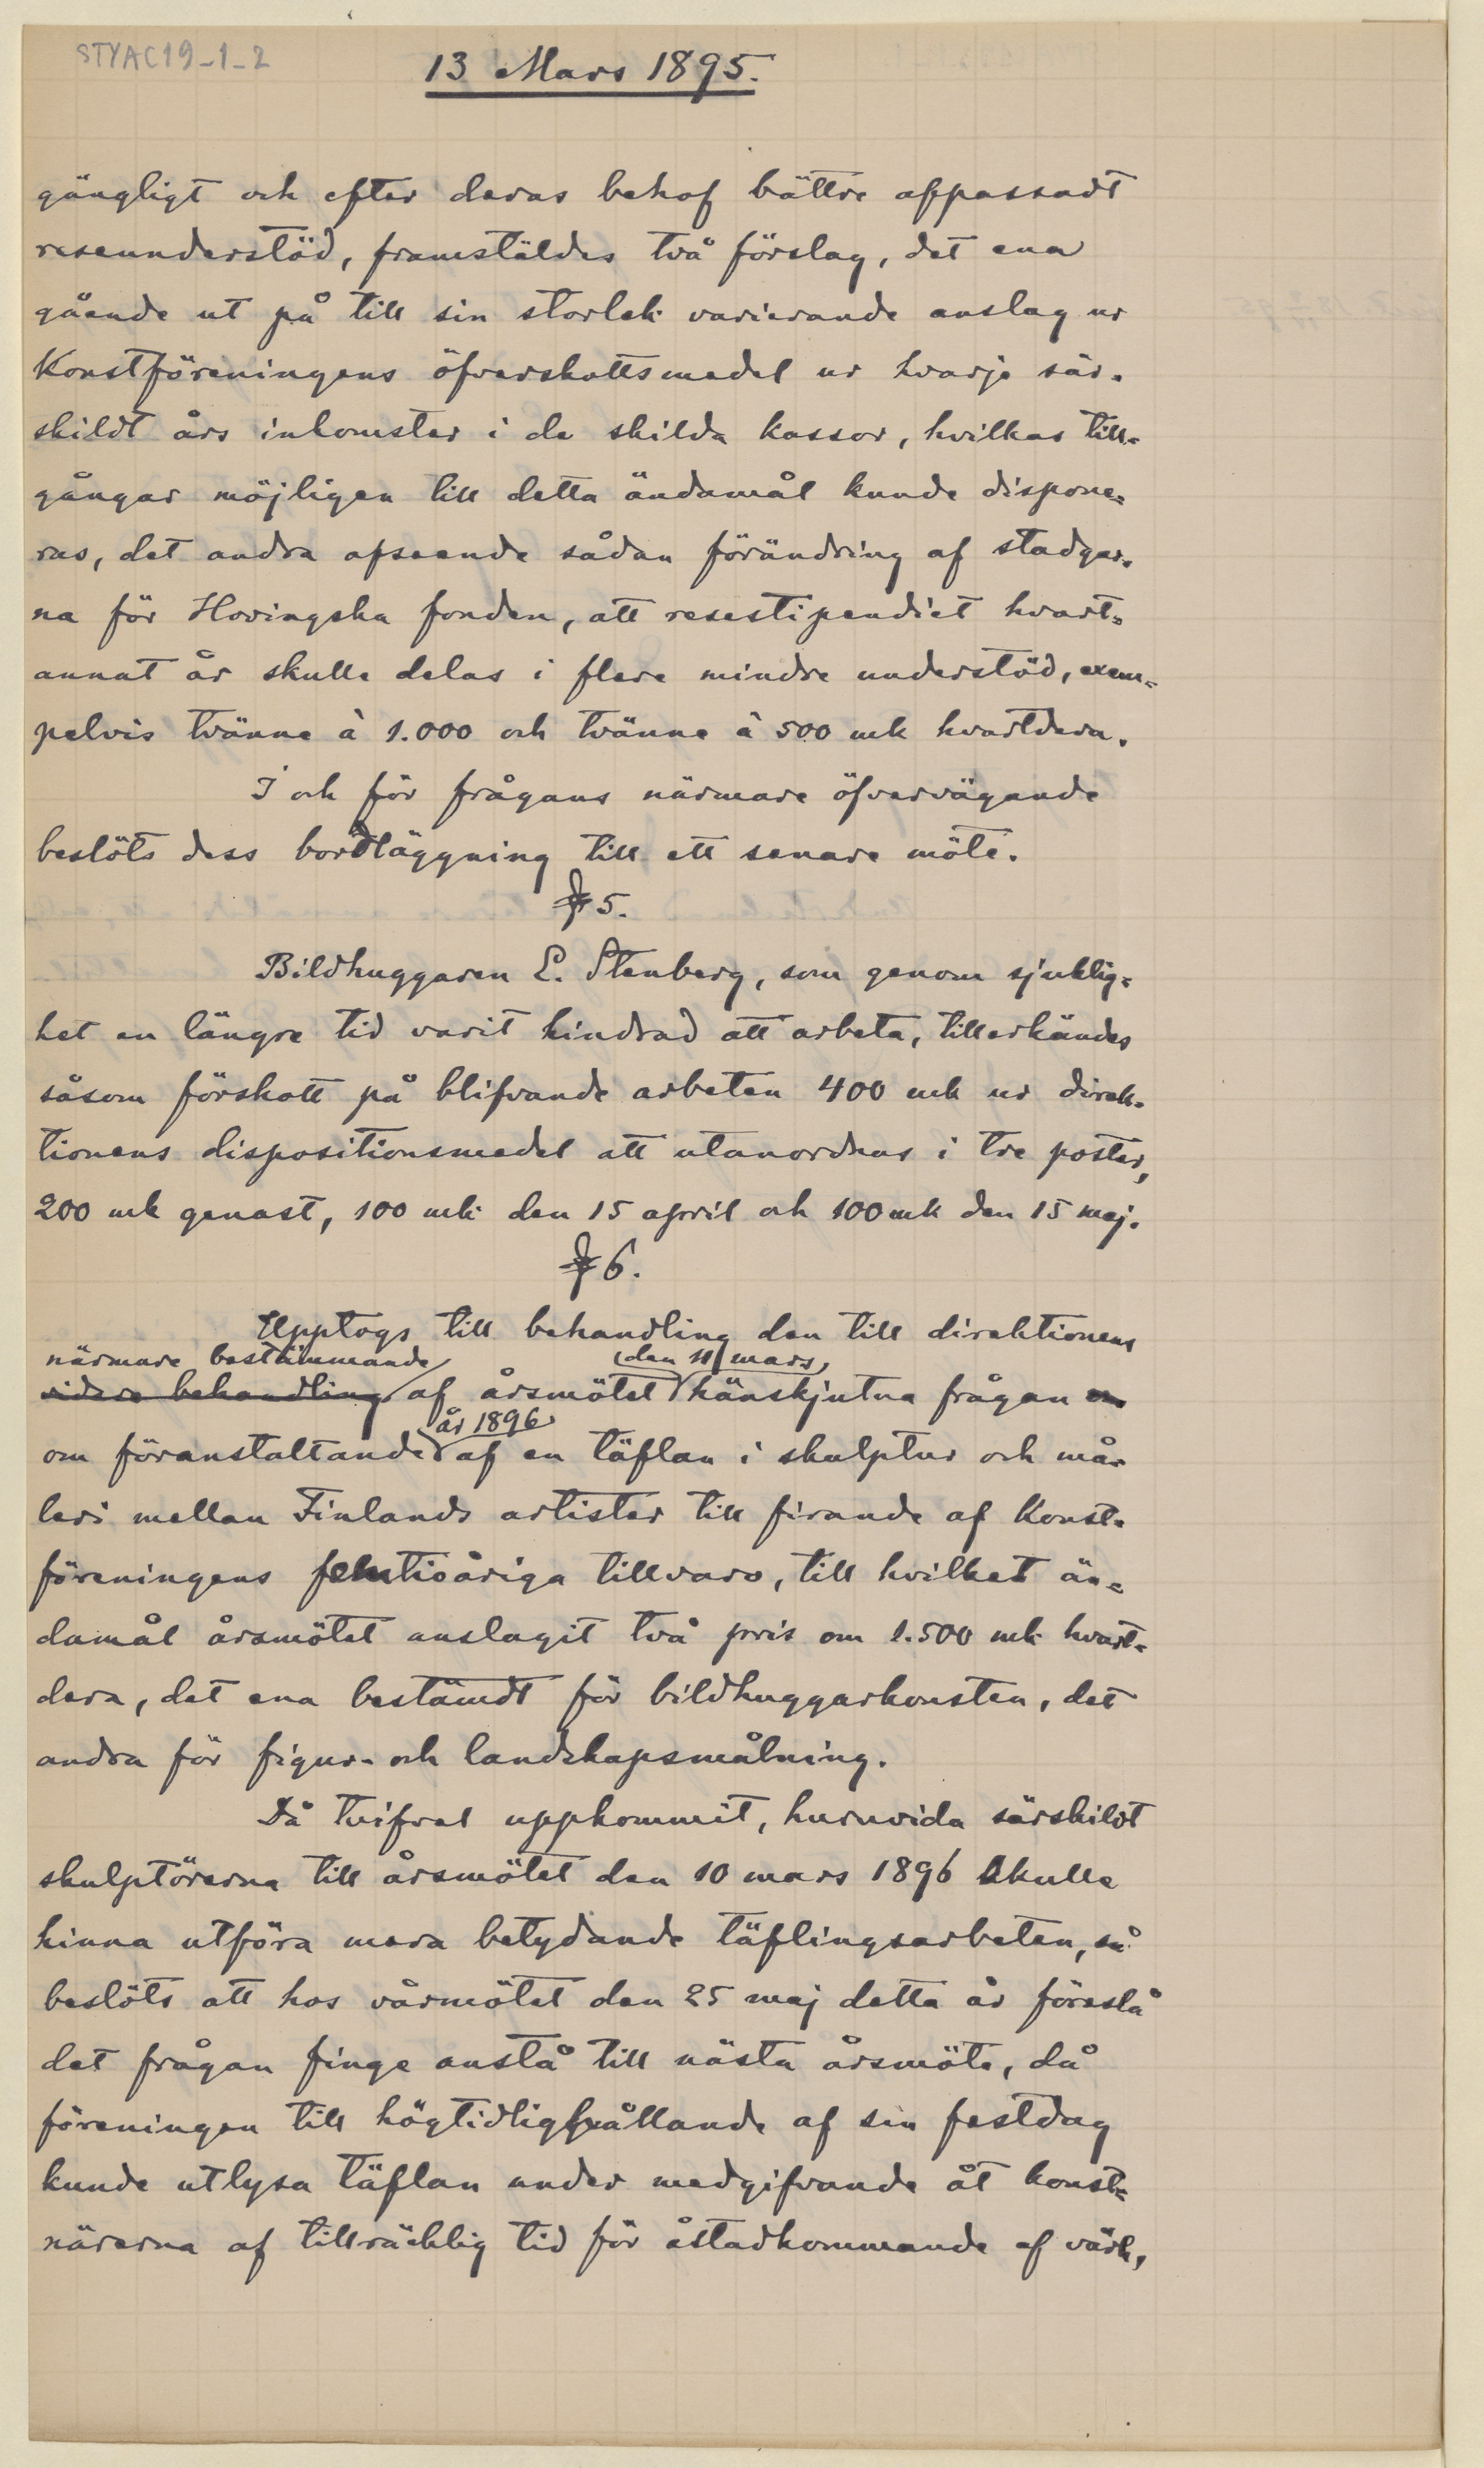 STYAC19-1-2
13 Mars 1895.
gängligt och efter deras behof bättre afpassadt
reseunderstöd, framstäldes två förslag, det ena
gående ut på till sin storlek varierande anslag ur
Konstföreningens öfverskottsmedel ur hvarje sär-
skildt års inkomster i de skilda kassor, hvilkas till-
gångar möjligen till detta ändamål kunde dispone-
ras, det andra afseende sådan förändring af stadgar-
na för Hovingska fonden, att resestipendiet hvart-
annat år skulle delas i flere mindre understöd, exem-
pelvis tvänne à 1.000 och tvänne à 500 mk hvartdera.
I och för frågans närmare öfvervägande
beslöts dess bordläggning till ett senare möte.
§ 5.
Bildhuggaren E. Stenberg, som genom sjuklig-
het en längre tid varit hindrad att arbeta, tillerkändes
såsom förskott på blifvande arbeten 400 mk ur direk-
tionens dispositionsmedel att utanordnas i tre poster,
200 mk genast, 100 mk den 15 april och 100 mk den 15 maj.
§ 6.
Upptogs till behandling den till direktionens
närmare bestämmande (den 11 mars)
vidare behandling af årsmötet hänskjutna frågan om
år 1896
om föranstaltande af en täflan i skulptur och må-
leri mellan Finlands artister till firande af Konst-
föreningens femtioåriga tillvaro, till hvilket än-
damål årsmötet anslagit två pris om 1.500 mk hvart-
dera, det ena bestämdt för bildhuggarkonsten, det
andra för figur- och landskapsmålning.
Då tvifvel uppkommit, huruvida särskildt
skulptörerna till årsmötet den 10 mars 1896 skulle
hinna utföra mera betydande täflingsarbeten, så
beslöts att hos vårmötet den 25 maj detta år föreslå
det frågan finge anstå till nästa årsmöte, då
föreningen till högtidlighållande af sin festdag
kunde utlysa täflan under medgifvande åt konst-
närerna af tillräcklig tid för åstadkommande af värk,